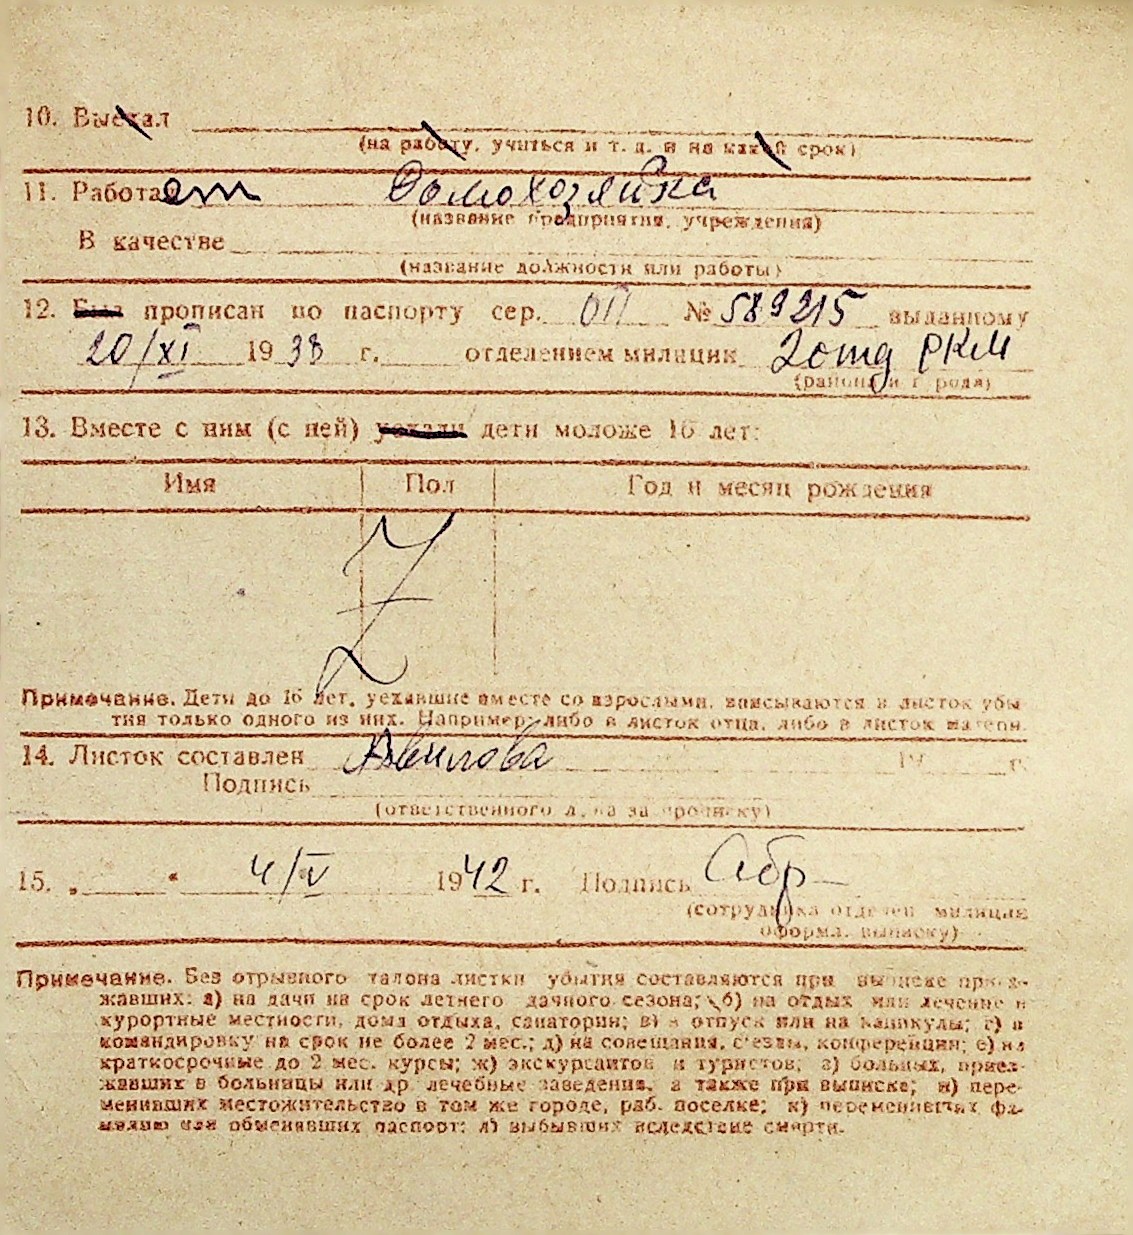 10. Выехал
(на работу, учиться и т. д. и на какой срок)
11. Работает Домохозяйка
(название предприятия, учреждения)
В качестве
(название должности или работы)
12. Был прописан по паспорту сер. ОП № 589215 выданному
20/XI 1938 г. отделением милиции 2 отд РКМ
(района и города)
13. Вместе с ним (с ней) уехали дети моложе 16 лет:
Имя Пол Год и месяц рождения
Z
Примечание. Дети до 16 лет, уехавшие вместе со взрослыми, вписываются в листок убы-
тия только одного из них. Например: либо в листок отца, либо в листок матери.
14. Листок составлен Авилова 19 г.
Подпись
(ответственного лица за прописку)
15. „ “ 4/V 1942 г. Подпись
(сотрудника отделен. милиции
оформ. выписку)
Примечание. Без отрывного талона листки убытия составляются при выписке приез-
жавших: а) на дачи на срок летнего дачного сезона; б) на отдых или лечение в
курортные местности, дома отдыха, санатории; в) в отпуск или на каникулы; г) в
командировку на срок не более 2 мес.; д) на совещания, с'езды, конференции; е) на
краткосрочные до 2 мес. курсы; ж) экскурсантов и туристов; з) больных, приез-
жавших в больницы или др. лечебные заведения, а также при выписке; и) пере-
менивших местожительство в том же городе, раб. поселке; к) переменивших фа-
милию или обменявших паспорт; л) выбывших вследствие смерти.